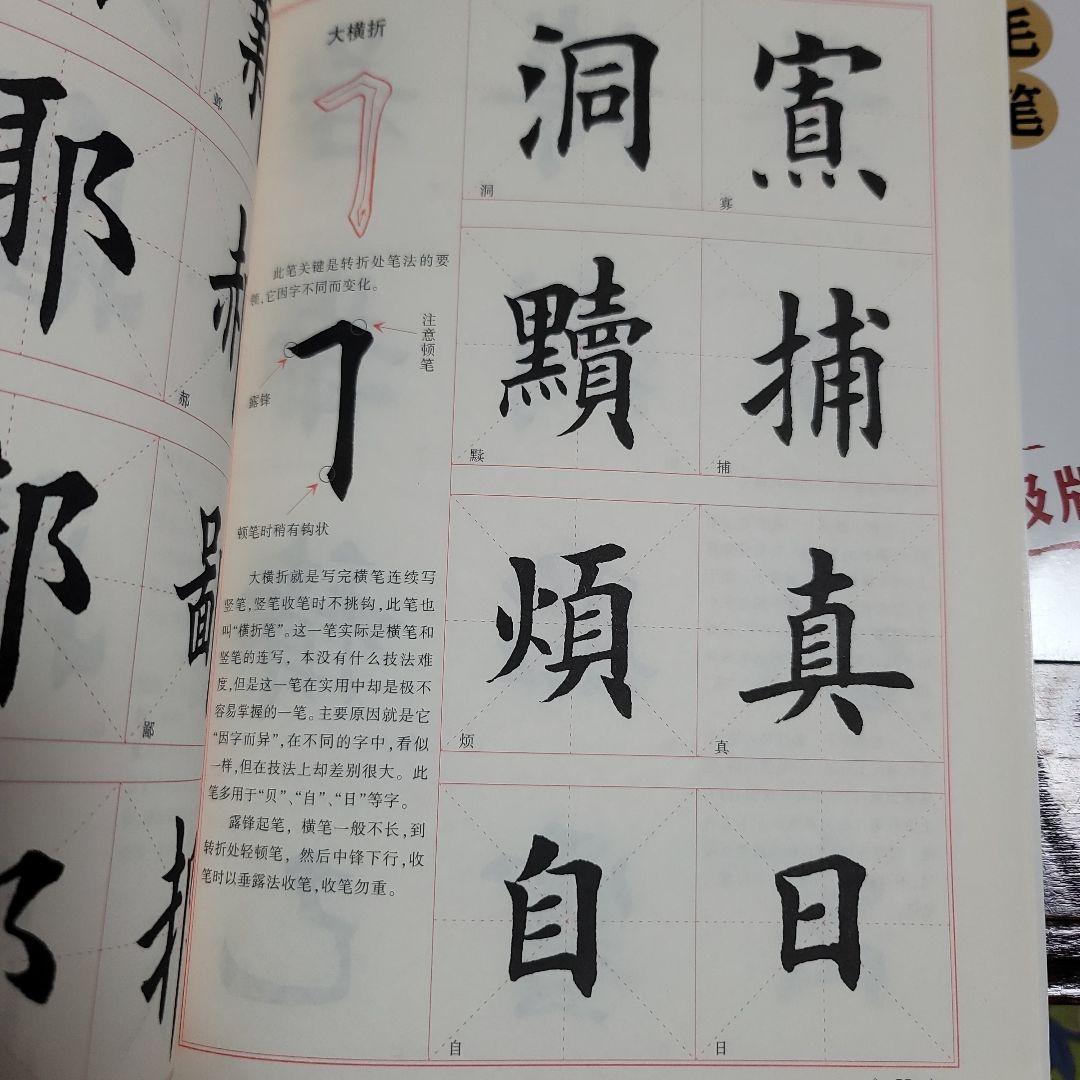 大横折
此笔关键是转折处笔法的要
领,它因字不同而变化。
注意顿笔
露锋
顿笔时稍有钩状
大横折就是写完横笔连续写
竖笔,竖笔收笔时不挑钩,此笔也
叫“横折笔”。这一笔实际是横笔和
竖笔的连写，本没有什么技法难
度,但是这一笔在实用中却是极不
容易掌握的一笔。主要原因就是它
“因字而异”,在不同的字中,看似
一样,但在技法上却差别很大。此
笔多用于“贝”、“自”、“日”等字。
露锋起笔，横笔一般不长,到
转折处轻顿笔，然后中锋下行,收
笔时以垂露法收笔,收笔勿重。
洞
洞
寡
黷
黩
捕
捕
煩
烦
真
真
自
自
日
日
郝
鄙
毛
笔
级版